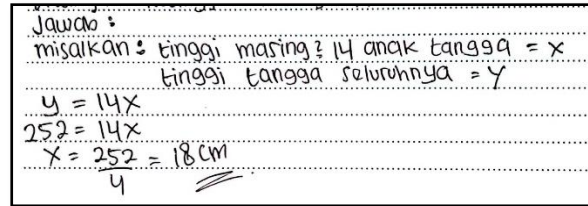 Jawab :
misalkan : tinggi masing² 14 anak tangga = x
tinggi tangga seluruhnya = y
y = 14x
252 = 14x
x = 252/4 = 18 cm